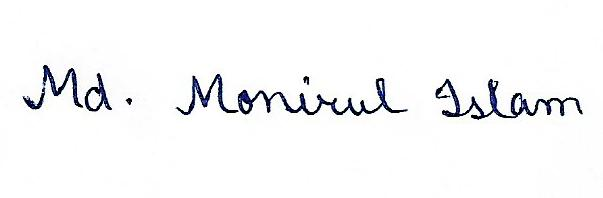 Md. Monirul Islam